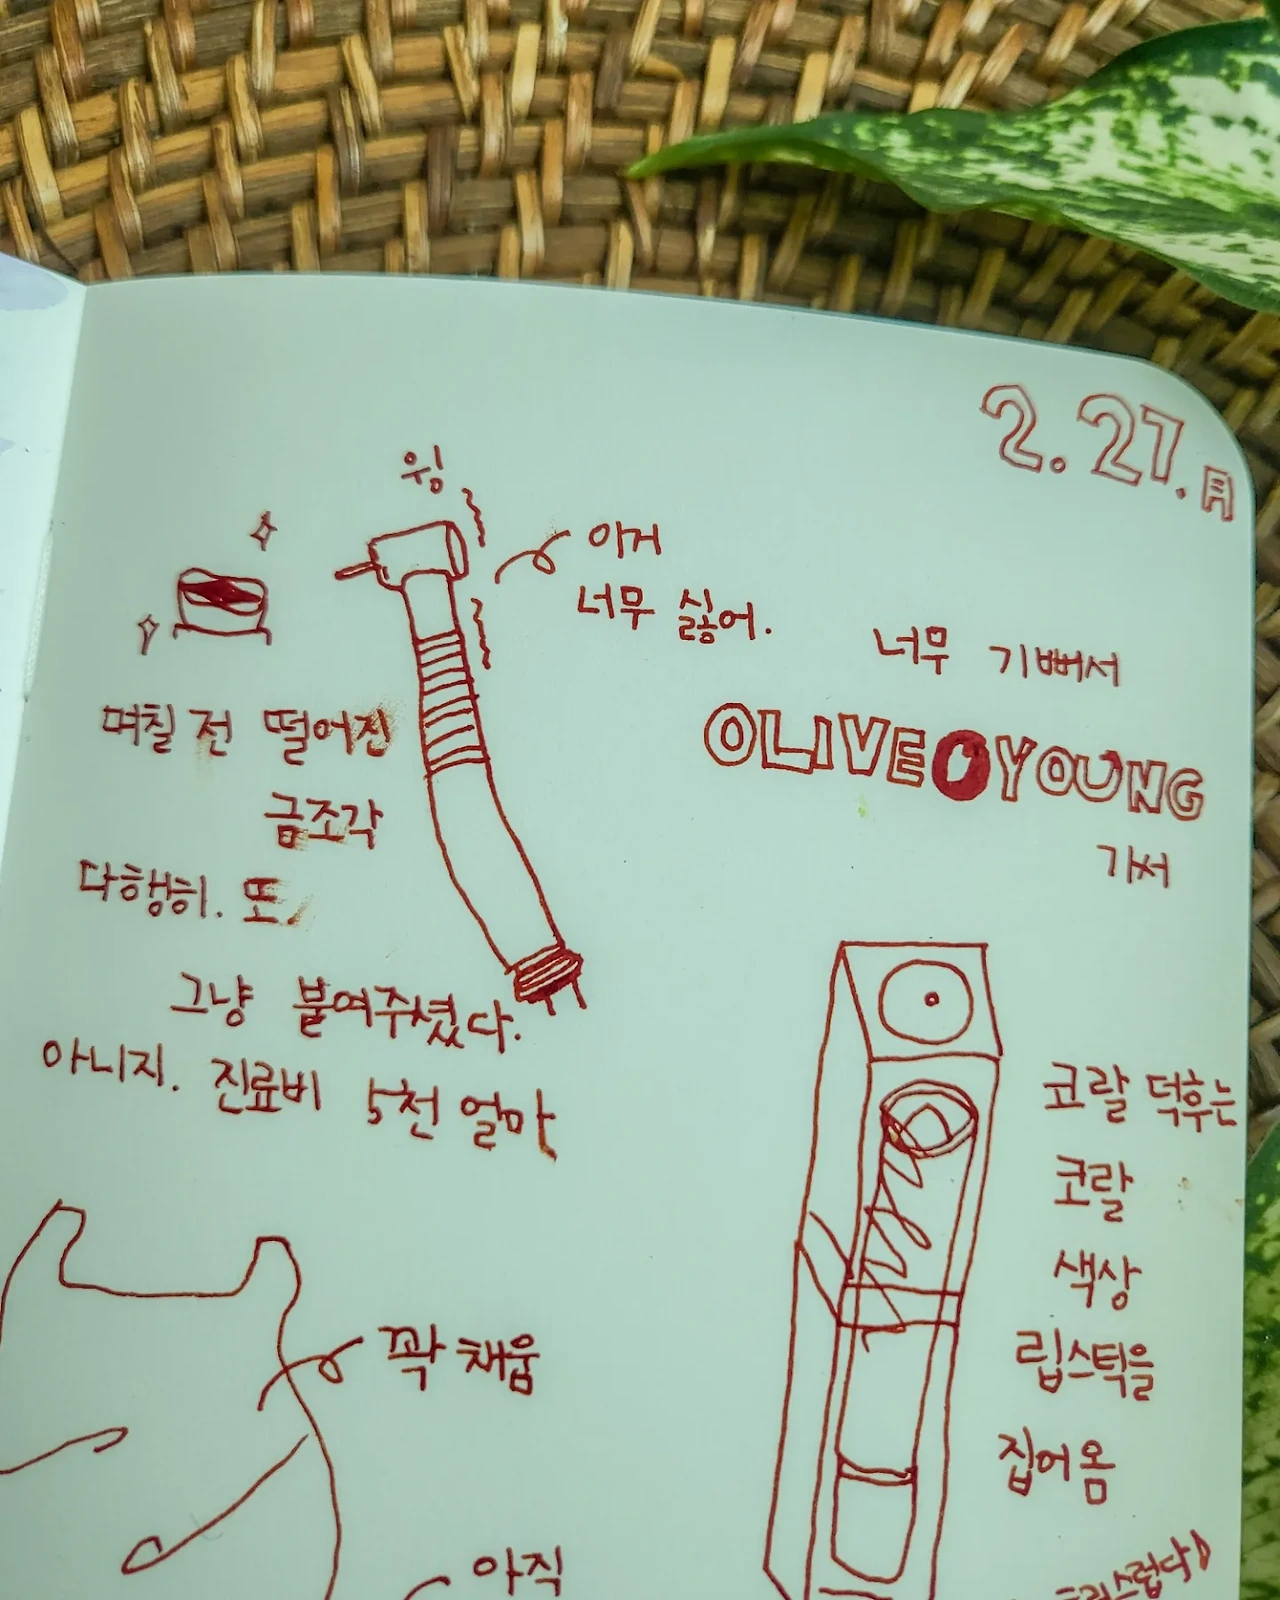 2.27.月
윙
아거
너무 싫어.
며칠 전 떨어진
금조각
다행히. 또,
그냥 붙여주셨다.
아니지. 진료비 5천 얼마
너무 기뻐서
OLIVE O YOUNG
가서
코랄 덕후는
코랄
색상
립스틱을
집어옴
꽉 채움
아직